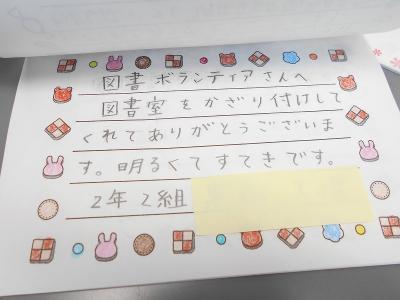 図書ボランティアさんへ
図書室をかざり付けして
くれてありがとうございま
す。明るくてすてきです。
2年2組